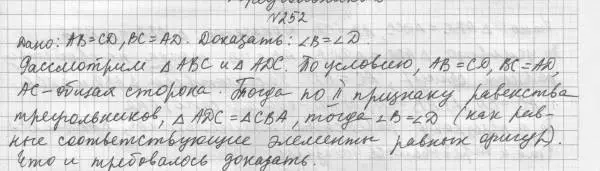 №252
Дано: AB=CD, BC=AD. Доказать: ∠B=∠D.
Рассмотрим △ABC и △ADC. По условию, AB=CD, BC=AD,
AC-общая сторона. Тогда по II признаку равенства
треугольников, △ADC=△CBA, тогда ∠B=∠D (как рав-
ные соответствующие элементы равных фигур).
Что и требовалось доказать.